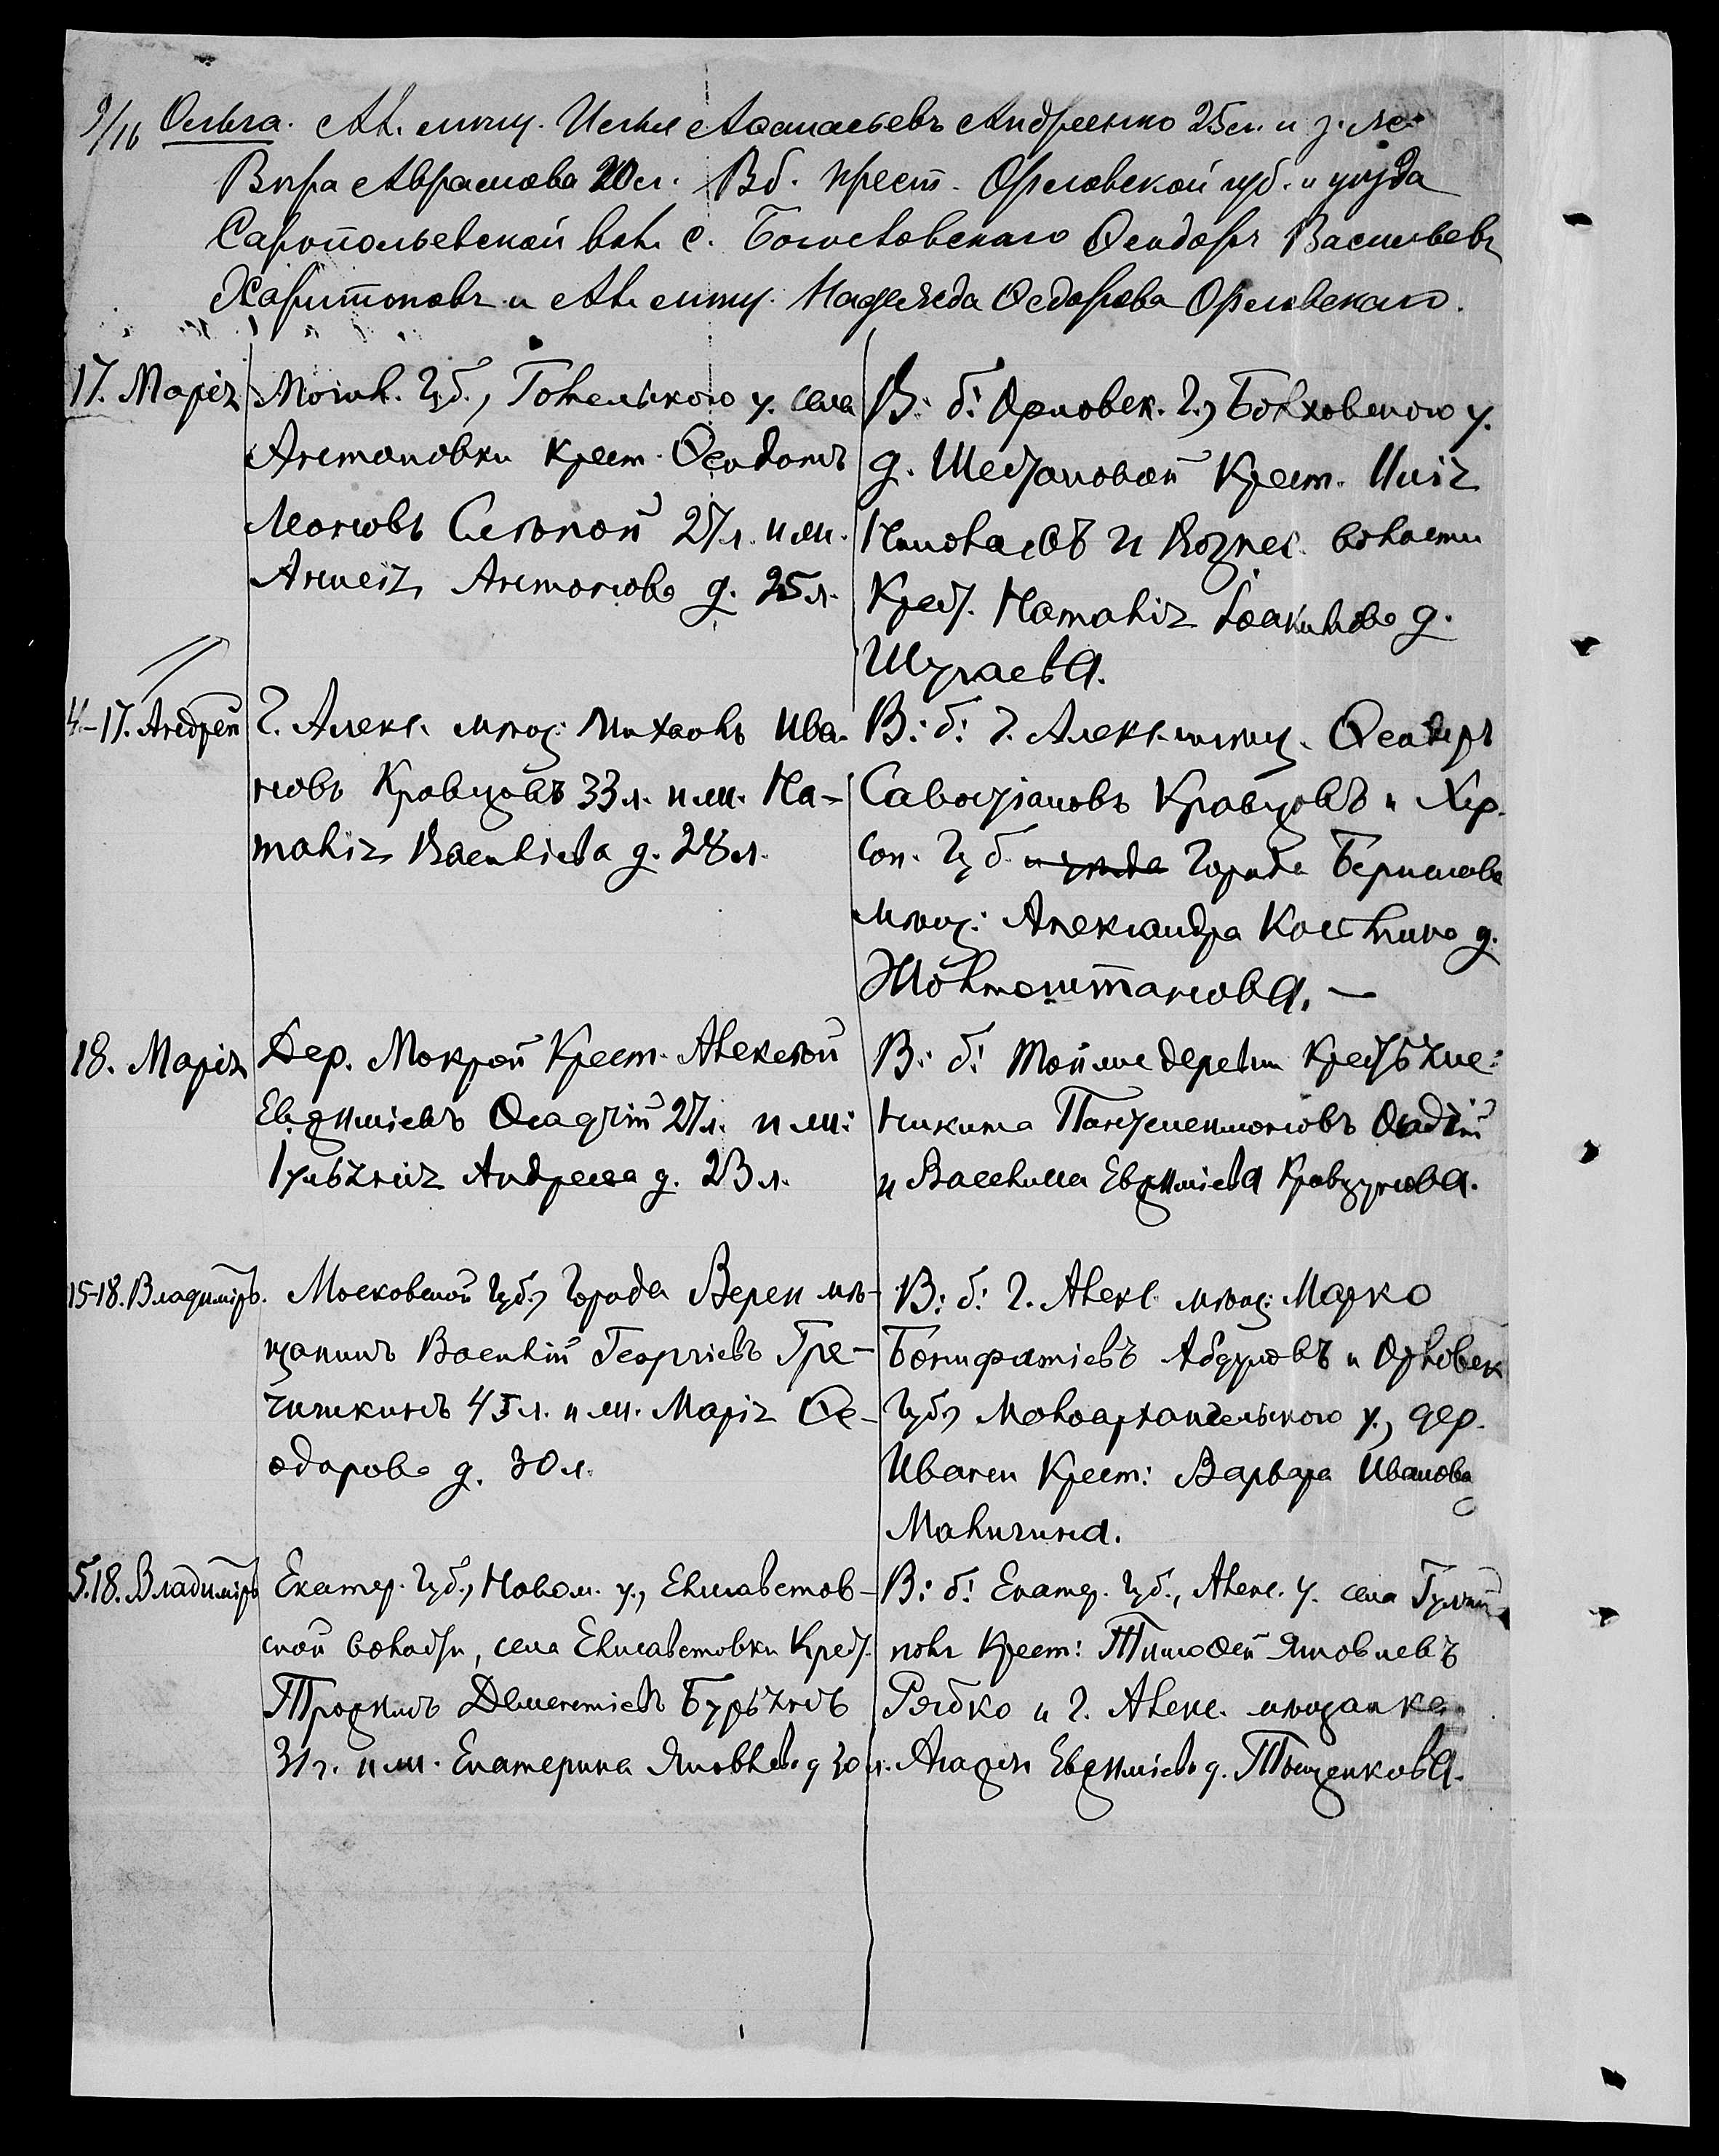 9/16 Ольга. Ал. мѣщ. Илья Аѳанасьевъ Андреенко 25 л. и з. же
Вѣра Аврамова 20 л. Вб. крест. Орловской губ. и уѣзда
вол. с. Богословскаго Ѳеодоръ Васильевъ
Харитоновъ и Ал. мѣщ. Надежда Ѳедорова Орловскаго.
17. Марія
Могил. Губ., Гомельскаго у. села
Антоновки крест. Ѳеодотъ
Леоновъ Слѣпой 27 л. и ж.
Антонова д. 25 л.
В: б: Орловск. Г., Болховского у.
д. Крест. Илія
и Вознес. волости
Крест. Наталія Іоакимова д.
Шугаева.
4-17. Андрей
Г. Алекс. мѣщ: Михаилъ Ива-
новъ Кравцовъ 33 л. и ж. На-
талія Василіева д. 28 л.
В: б: Г. Алекс. мѣщ. Ѳеодоръ
Савостіановъ Кравцовъ и Хер-
сон. Губ. и уѣзда Города Берислава
мѣщ: Александра д.
18. Марія
Дер. Мокрой Крест. Алексѣй
Евѳиміевъ Осадчій 27 л. и ж:
Іуліанія Андреева д. 23 л.
В: б: той же деревни Крестьяне:
Никита Пантелеимоновъ Осадчій
и Васселиса Евѳиміева Кравцунова.
15-18. Владиміръ.
Московской Губ., Города Вереи мѣ-
щанинъ Василій Георгіевъ Гре-
чишкинъ 45 л. и ж. Марія Ѳе-
одорова д. 30 л.
В: б: Г. Алекс. мѣщ: Марко
Бонифатіевъ Абдуловъ и Орловск
Губ., Малоархангельского у., дер.
Ивани Крест: Варвара Иванова
Маличина.
5.18. Владиміръ
Екатер. Губ., Новом. у., Елисаветов-
ской волости, села Елисаветовки Крест.
Трофимъ Дементіевъ Бурьянъ
31 г. и ж. Екатерина Яковлева д 30 л.
В: б: Екатер. Губ., Алекс. у. села Гуляй
поля Крест: Тимоѳей Яковлевъ
Рябко и г. Алекс. мѣщанка
Агаѳія Евѳиміева д. Тыщенкова.